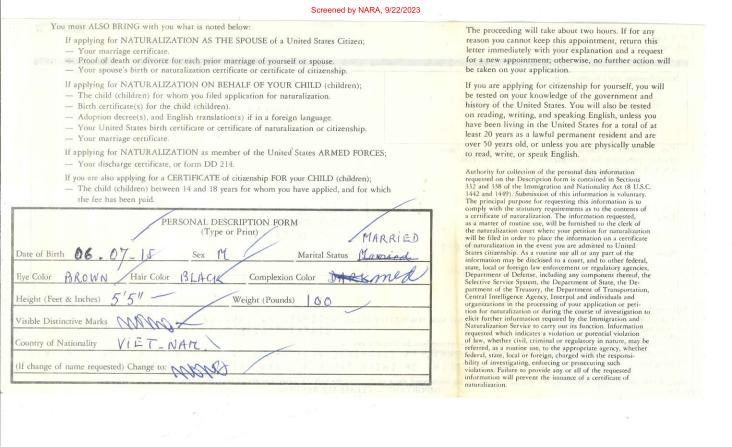 Screened by NARA, 9/22/2023
You must ALSO BRING with you what is noted below:
If applying for NATURALIZATION AS THE SPOUSE of a United States Citizen;
— Your marriage certificate.
— Proof of death or divorce for each prior marriage of yourself or spouse.
— Your spouse's birth or naturalization certificate or certificate of citizenship.
If applying for NATURALIZATION ON BEHALF OF YOUR CHILD (children);
— The child (children) for whom you filed application for naturalization.
— Birth certificate(s) for the child (children).
— Adoption decree(s), and English translation(s) if in a foreign language.
— Your United States birth certificate or certificate of naturalization or citizenship.
— Your marriage certificate.
If applying for NATURALIZATION as member of the United States ARMED FORCES;
— Your discharge certificate, or form DD 214.
If you are also applying for a CERTIFICATE of citizenship FOR your CHILD (children);
— The child (children) between 14 and 18 years for whom you have applied, and for which
the fee has been paid.
PERSONAL DESCRIPTION FORM
(Type or Print)
MARRIED
Date of Birth 06.07-15 Sex M Marital Status Married
Eye Color BROWN Hair Color BLACK Complexion Color DARK med
Height (Feet & Inches) 5'5" Weight (Pounds) 100
Visible Distinctive Marks
Country of Nationality VIET-NAM
(If change of name requested) Change to:
The proceeding will take about two hours. If for any
reason you cannot keep this appointment, return this
letter immediately with your explanation and a request
for a new appointment; otherwise, no further action will
be taken on your application.
If you are applying for citizenship for yourself, you will
be tested on your knowledge of the government and
history of the United States. You will also be tested
on reading, writing, and speaking English, unless you
have been living in the United States for a total of at
least 20 years as a lawful permanent resident and are
over 50 years old, or unless you are physically unable
to read, write, or speak English.
Authority for collection of the personal data information
requested on the Description form is contained in Sections
332 and 338 of the Immigration and Nationality Act (8 U.S.C.
1442 and 1449). Submission of this information is voluntary.
The principal purpose for requesting this information is to
comply with the statutory requirements as to the contents of
a certificate of naturalization. The information requested,
as a matter of routine use, will be furnished to the clerk of
the naturalization court where your petition for naturalization
will be filed in order to place the information on a certificate
of naturalization in the event you are admitted to United
States citizenship. As a routine use all or any part of the
information may be disclosed to a court, and to other federal,
state, local or foreign law enforcement or regulatory agencies,
Department of Defense, including any component thereof, the
Selective Service System, the Department of State, the De-
partment of the Treasury, the Department of Transportation,
Central Intelligence Agency, Interpol and individuals and
organizations in the processing of your application or peti-
tion for naturalization or during the course of investigation to
elicit further information required by the Immigration and
Naturalization Service to carry out its function. Information
requested which indicates a violation or potential violation
of law, whether civil, criminal or regulatory in nature, may be
referred, as a routine use, to the appropriate agency, whether
federal, state, local or foreign, charged with the responsi-
bility of investigating, enforcing or prosecuting such
violations. Failure to provide any or all of the requested
information will prevent the issuance of a certificate of
naturalization.